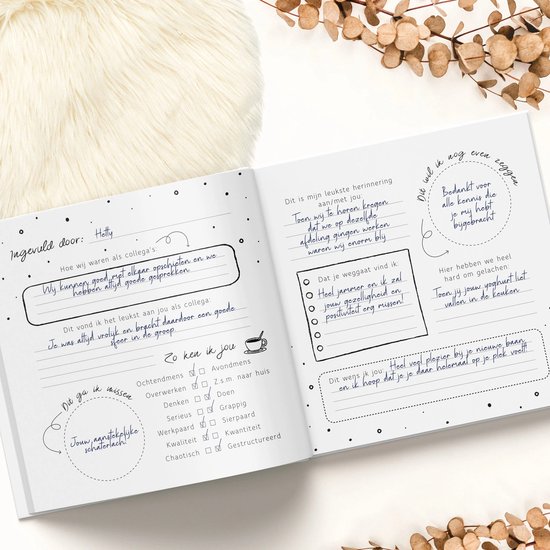 Ingevuld door: Hetty
Hoe wij waren als collega's
Wij kunnen goed met elkaar opschieten en we
hebben altijd goede gesprekken
Dit vond ik het leukst aan jou als collega
Je was altijd vrolijk en bracht daardoor een goede
sfeer in de groep
Zo ken ik jou
Ochtendmens Avondmens
Overwerken Z.s.m. naar huis
Denken Doen
Serieus Grappig
Werkpaard Sierpaard
Kwaliteit Kwantiteit
Chaotisch Gestructureerd
Dit ga ik missen
Jouw aanstekelijke
schaterlach!
Dit is mijn leukste herinnering
aan/met jou:
Toen wij te horen kregen
dat we op dezelfde
afdeling gingen werken
waren wij enorm blij
Die wil ik nog even zeggen
Bedankt voor
alle kennis die
je mij hebt
bijgebracht
Dat je weggaat vind ik
Heel jammer en ik zal
jouw gezelligheid en
positiviteit erg missen!
Hier hebben we heel
hard om gelachen
Toen jij jouw yoghurt liet
vallen in de keuken
Dit wens ik jou Heel veel plezier bij je nieuwe baan
en ik hoop dat je je daar helemaal op je plek voelt!